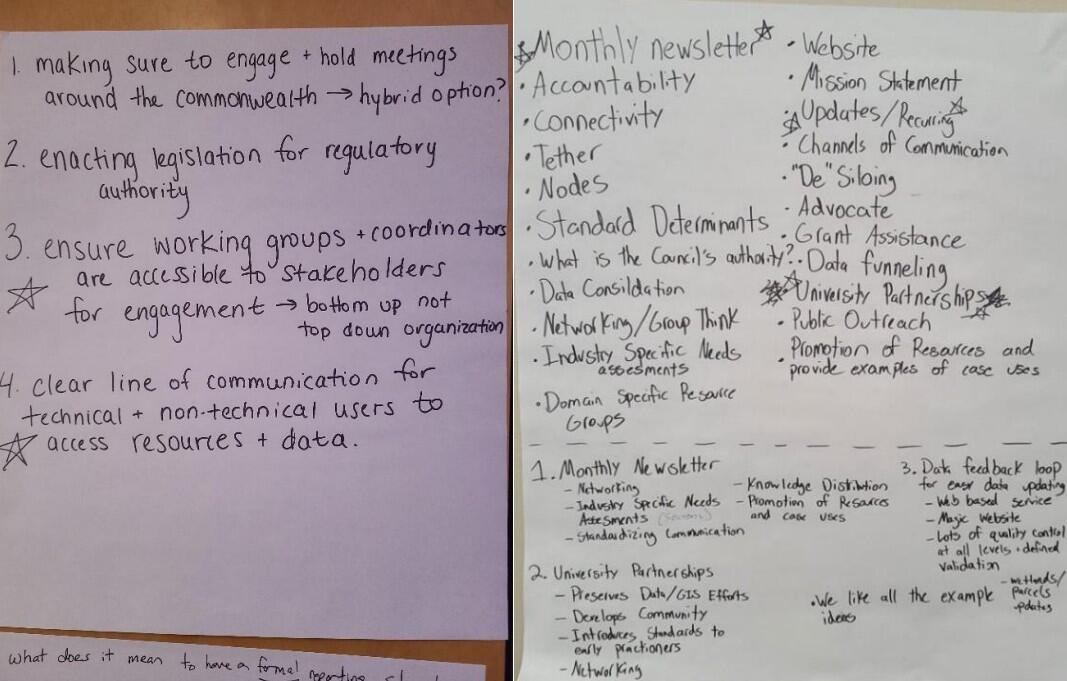 1. making sure to engage + hold meetings
around the commonwealth → hybrid option?
2. enacting legislation for regulatory
authority
3. ensure working groups + coordinators
are accessible to stakeholders
for engagement → bottom up not
top down organization
4. clear line of communication for
technical + non-technical users to
access resources + data.
what does it mean to have a formal reporting
Monthly newsletter
• Accountability
• Connectivity
• Tether
• Nodes
• Standard Determinants
• What is the Council's authority?
• Data Consildation
• Networking/Group Think
• Industry Specific Needs
assesments
• Domain Specific Resource
Groups
• Website
• Mission Statement
• Updates/Recurring
• Channels of Communication
• "De" Siloing
• Advocate
• Grant Assistance
• Data funneling
University Partnerships
• Public Outreach
• Promotion of Resources and
provide examples of case uses
1. Monthly Newsletter
- Networking
- Industry Specific Needs
Assesments
- Standardizing Communication
- Knowledge Distribution
- Promotion of Resources
and case uses
2. University Partnerships
- Preserves Data/GIS Efforts
- Develops Community
- Introduces Standards to
early practioners
- Networking
3. Data feedback loop
for easy data updating
- Web based service
- Magic Website
- Lots of quality control
at all levels + defined
validation
- wetlands/
parcels
updates
• We like all the example
ideas